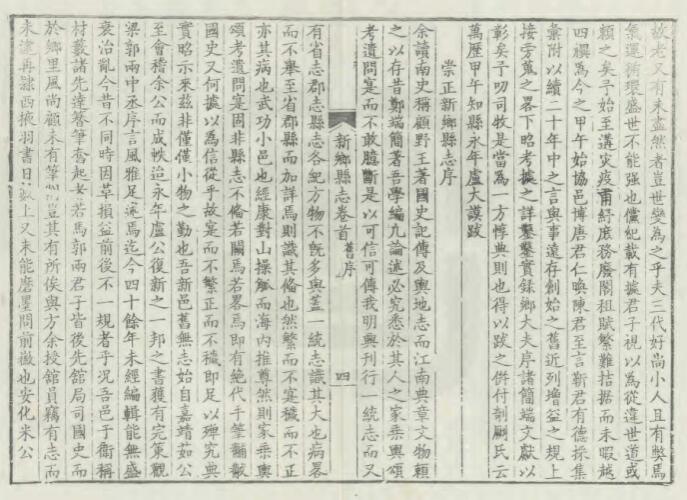 故老又有未盡然者豈世變為之乎夫三代好尚小人且有獎焉
氣運循環盛世不能强也儻紀載有據君子視以為從違世道或
賴之矣予始至溝灾疫甫紓庶務廢闇租賦繁難拮据而未暇越
四禩為今之甲午始協邑博唐君仁喚陳君至言靳君有德採集
彙附以續二十年中之言與事遠存創始之舊近列增益之規上
接旁蒐之畧下昭考據之詳鑿鑿實錄鄉大夫序諸簡端文獻以
彰矣予叨司牧是當為一方惇典則也得以跋之併付剞劂氏云
萬歷甲午知縣永年盧大謨跋
崇正新鄉縣志序
余讀南史稱顧野王著國史記傳及輿地志而江南典章文物賴
之以存昔鄭端簡著吾學編凡論述必究悉於其人之家乘輿頌
考遺問寔而不敢臆斷是以可信可傳我明興刊行一統志而又
新鄉縣志卷首 舊序 四
有省志郡志縣志各紀方物不旣多與蓋一統志識其大也病畧
而不舉至省郡縣而加詳焉則識其偹也然繁而不寔穢而不正
亦其病也武功小邑也經康對山操觚而海內推尊然則家乘輿
頌考遺問寔固非縣志不偹若闕焉若畧焉即有絶代手筆黼黻
國史又何據以為信從乎故寔而不繁正而不穢即足以殫究典
實昭示來兹非僅僅小物之勤也吾新邑舊無志始自嘉靖茹公
至會稽余公而成帙迨永年盧公復新之一邦之書獲有完策觀
梁郭兩中丞序言風雅足遡焉迄今四十餘年未經編輯能無盛
衰治亂今昔不同時因革損益前後不一規者乎况吾邑于衞稱
材藪諸先達簪筆奮起女若馬郭兩君子皆後先舘局司國史而
於鄉里風尚顧未有筆 豈其有所俟與方余授舘員竊有志而
未逮再隸西掖羽書日 上又未能磨墨問前徽也安化米公